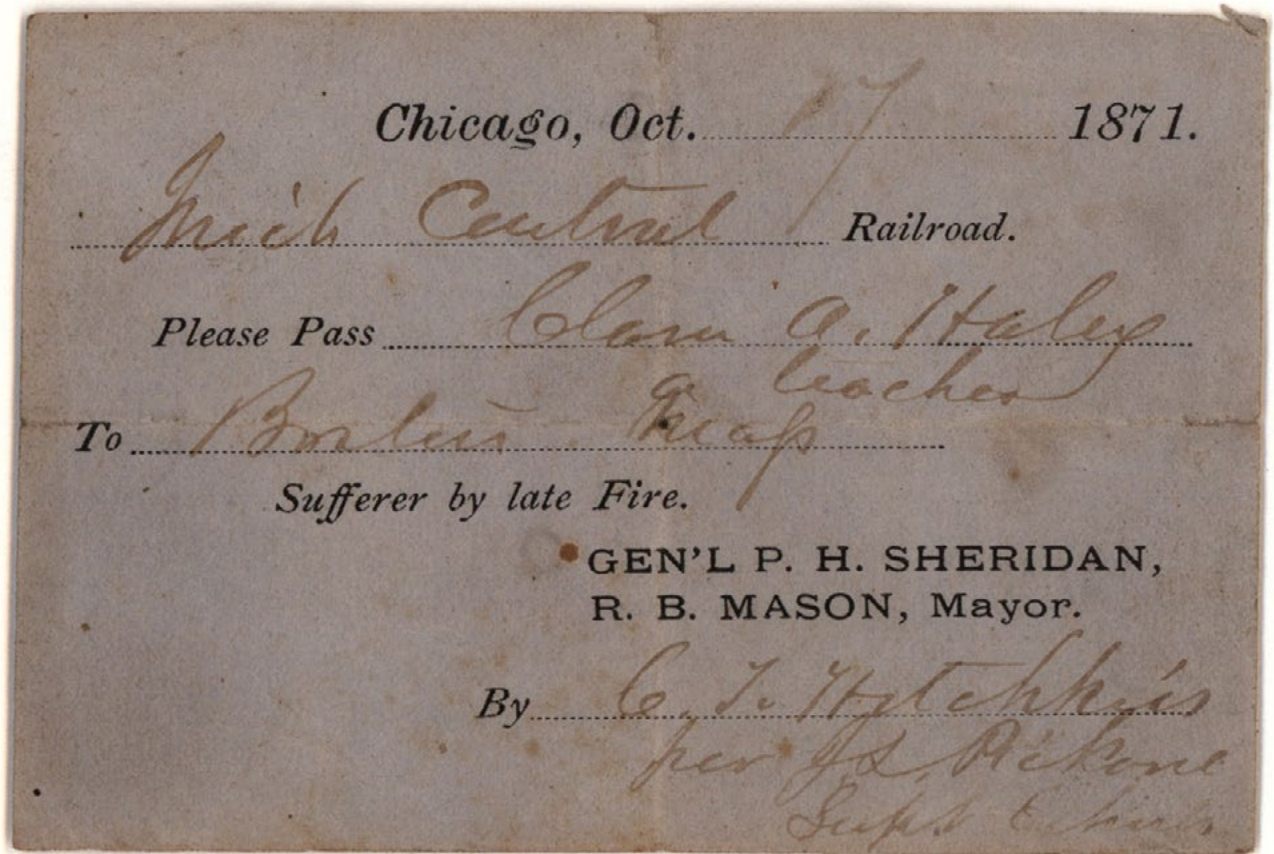 Chicago, Oct. 17 1871.
Mich Central Railroad.
Please Pass Clara A. Haley
a teacher
To Boston Mass
Sufferer by late Fire.
GEN'L P. H. SHERIDAN,
R. B. MASON, Mayor.
By C. T. Hotchkiss
per J. L. Pickard
Supt